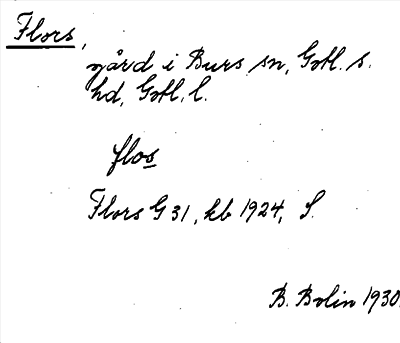 Flors,
gård i Burs sn, Gotl. s.
hd, Gotl. l.
flos
Flors G 31, kb 1924, S.
B. Bolin 1930.